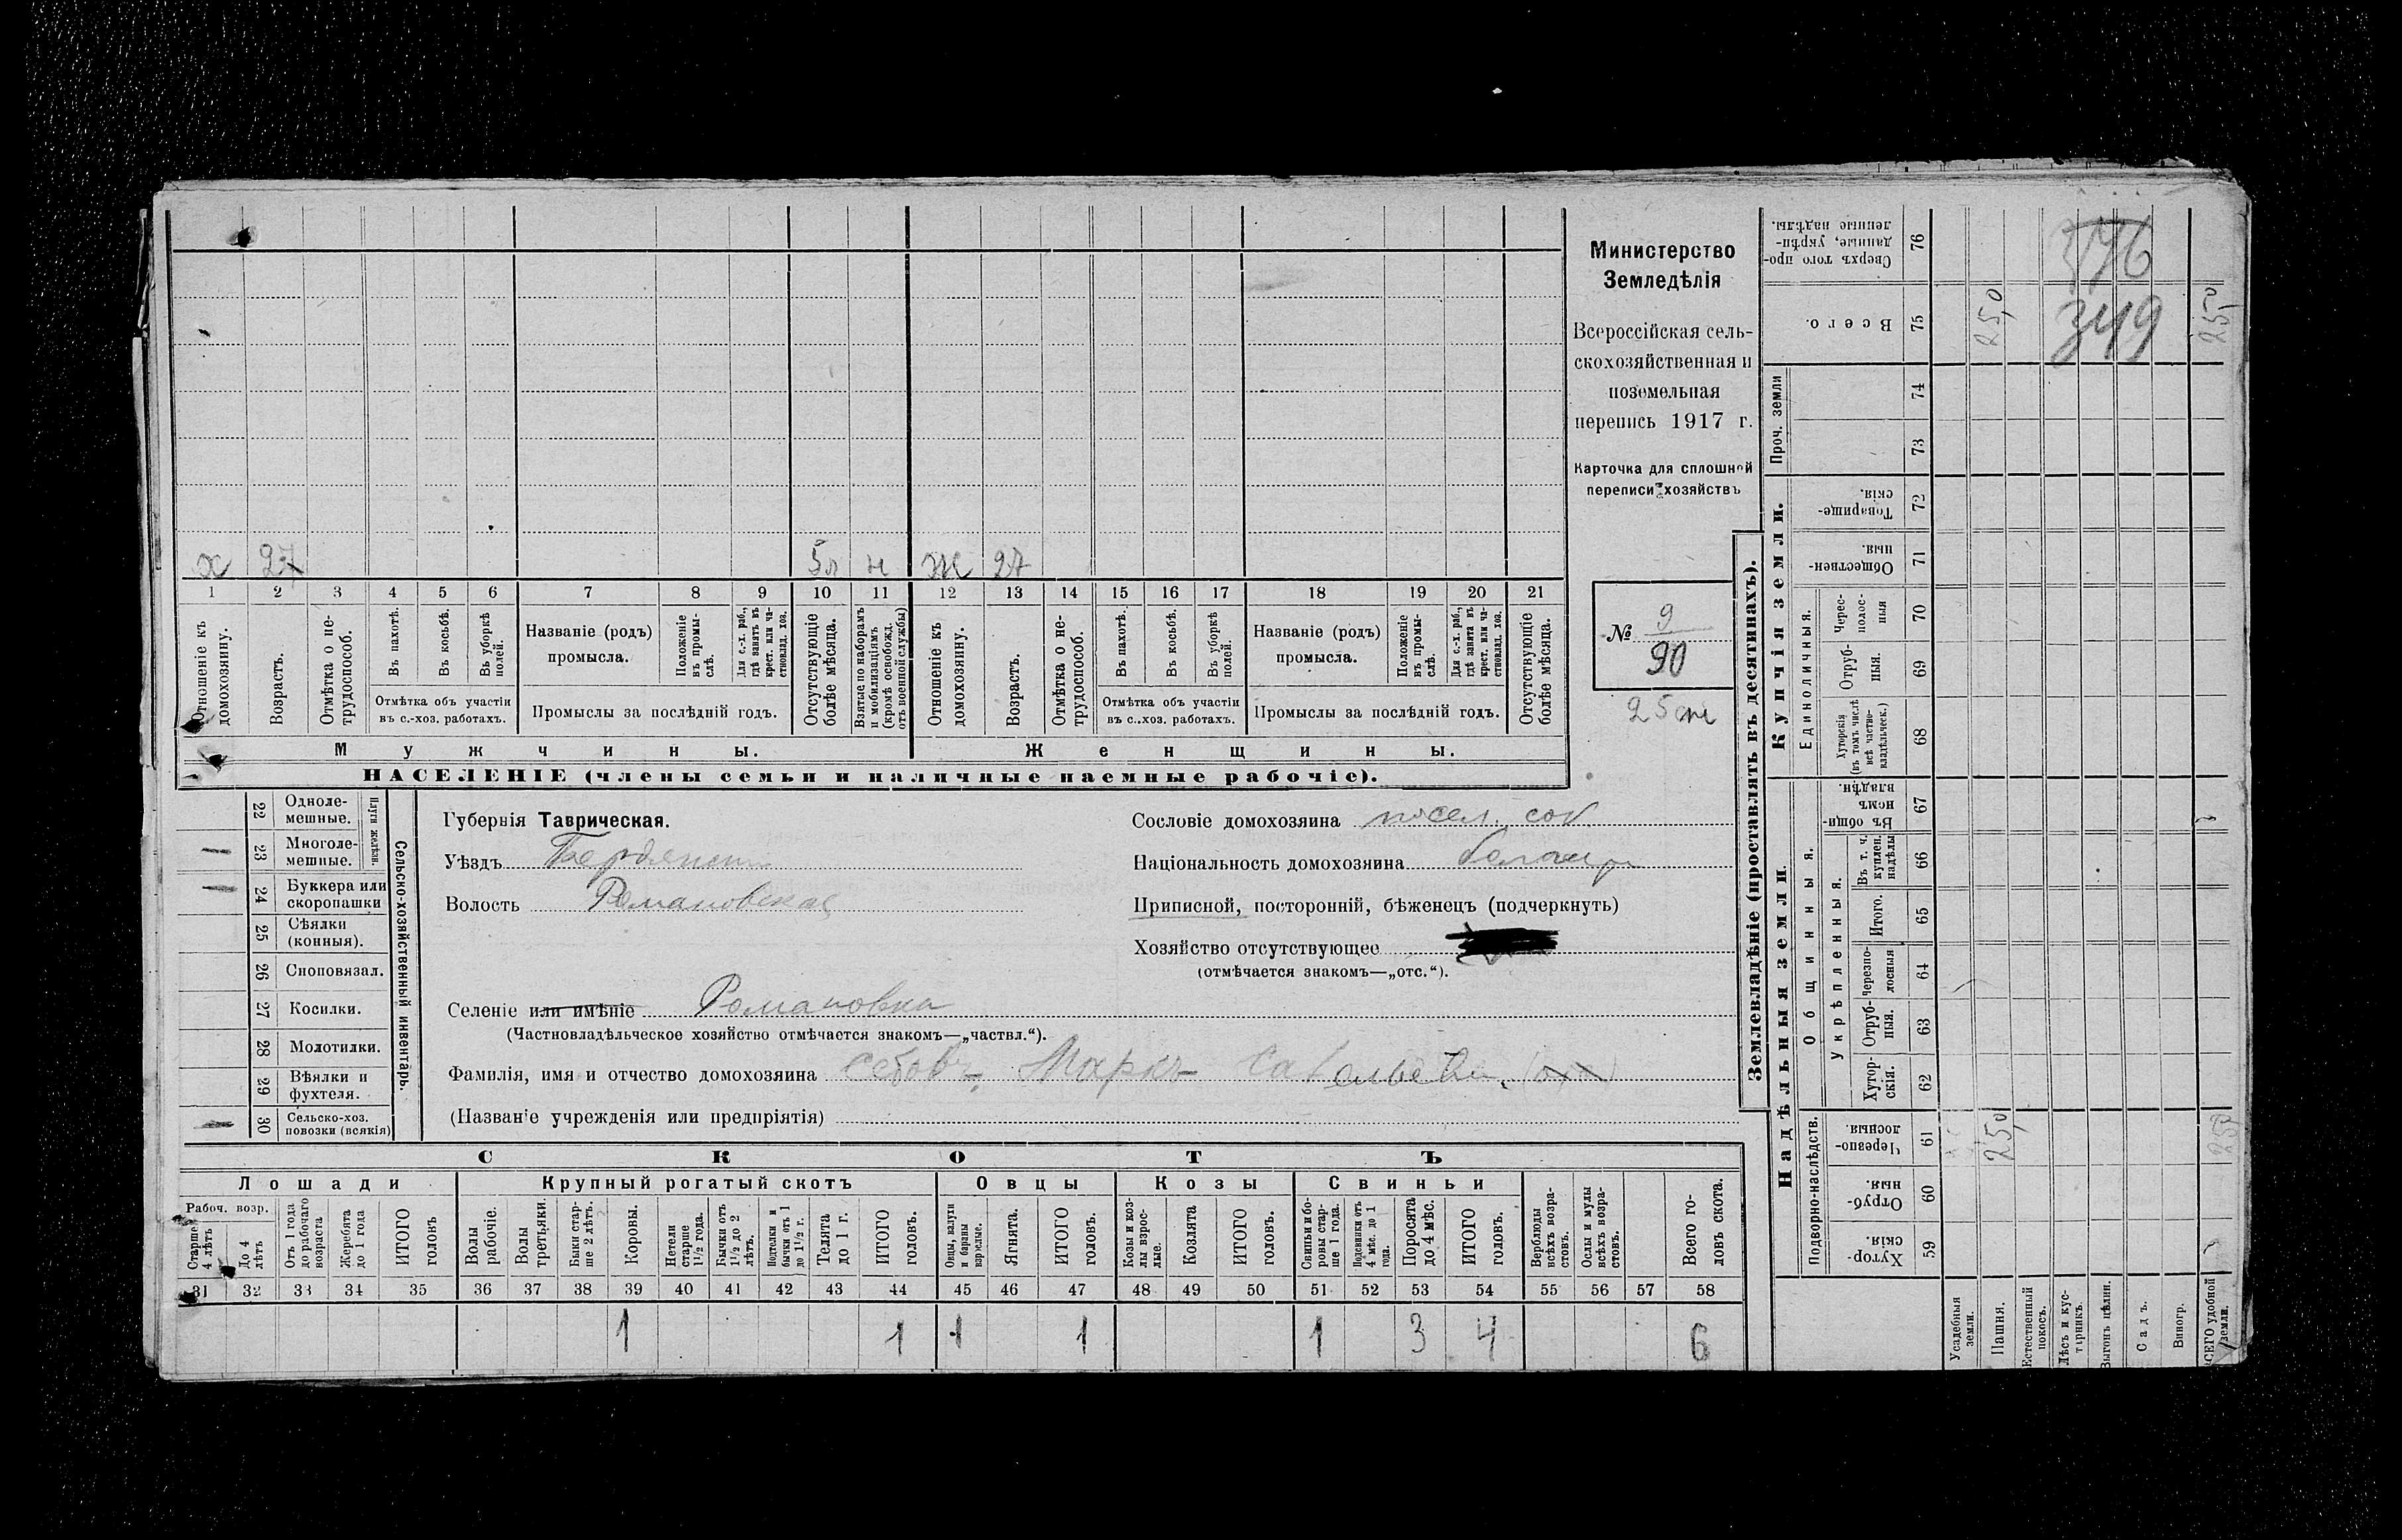 х 27 5л н ж 27
1 2 3 4 5 6 7 8 9 10 11 12 13 14 15 16 17 18 19 20 21
Отношеніе къ домохозяину.
Возрастъ.
Отмѣтка о не-
трудоспособ.
Въ пахотѣ.
Въ косьбѣ.
Въ уборкѣ полей.
Отмѣтка объ участіи
въ с.-хоз. работахъ.
Названіе (родъ)
промысла.
Положеніе въ промы-
слѣ.
Для с.-х. раб.,
гдѣ занятъ въ
крест. или ча-
стновлад. хоз.
Промыслы за послѣдній годъ.
Отсутствующіе
болѣе мѣсяца.
Взятые по наборамъ
и мобилизаціямъ
(кромѣ освобожд.
отъ военной службы)
Отношеніе къ
домохозяину.
Возрастъ.
Отмѣтка о не-
трудоспособ.
Въ пахотѣ.
Въ косьбѣ.
Въ уборкѣ
полей.
Отмѣтка объ участіи
въ с.-хоз. работахъ.
Названіе (родъ)
промысла.
Положеніе
въ промы-
слѣ.
Для с.-х. раб.,
гдѣ занята въ
крест. или ча-
стновлад. хоз.
Промыслы за послѣдній годъ.
Отсутствующіе
болѣе мѣсяца.
Мужчины.
Женщины.
НАСЕЛЕНІЕ (члены семьи и наличные наемные рабочіе).
Министерство
Земледѣлія
Всероссійская сель-
скохозяйственная и
поземельная
перепись 1917 г.
Карточка для сплошной
переписи хозяйствъ
№ 9
90
25
22 Одноле-
мешные.
23 Многоле-
мешные.
Плуги желѣзн.
24 Буккера или
скоропашки
25 Сѣялки
(конныя).
26 Сноповязал.
27 Косилки.
28 Молотилки.
29 Вѣялки и
фухтеля.
30 Сельско-хоз.
повозки (всякія)
Сельско-хозяйственный инвентарь.
Губернія Таврическая.
Уѣздъ Бердянскій
Волость Романовская
Селеніе или имѣніе Романовка
(Частновладѣльческое хозяйство отмѣчается знакомъ—„частвл.“).
Фамилія, имя и отчество домохозяина Маркъ Савельевъ
(Названіе учрежденія или предпріятія)
Сословіе домохозяина посел. соб.
Національность домохозяина
Приписной, посторонній, бѣженецъ (подчеркнуть)
Хозяйство отсутствующее
(отмѣчается знакомъ—„отс.“).
СКОТЪ
Лошади
Крупный рогатый скотъ
Овцы
Козы
Свиньи
Рабоч. возр.
Старше
4 лѣтъ
До 4
лѣтъ
Отъ 1 года
до рабочаго
возраста
Жеребята
до 1 года
ИТОГО
головъ
Волы
рабочіе.
Волы
третьяки.
Быки стар-
ше 2 лѣтъ.
Коровы.
Нетели
старше
1½ года.
Бычки отъ
1½ до 2
лѣтъ.
Подтелки и
бычки отъ 1
до 1½ г.
Телята
до 1 г.
ИТОГО
головъ.
Овцы, валухи
и бараны
взрослые.
Ягнята.
ИТОГО
головъ.
Козы и коз-
лы взрос-
лые.
Козлята
ИТОГО
головъ.
Свиньи и бо-
ровы стар-
ше 1 года.
Подсвинки отъ
4 мѣс. до 1
года.
Поросята
до 4 мѣс.
ИТОГО
головъ.
Верблюды
всѣхъ возра-
стовъ.
Ослы и мулы
всѣхъ возра-
стовъ.
Всего го-
ловъ скота.
31 32 33 34 35 36 37 38 39 40 41 42 43 44 45 46 47 48 49 50 51 52 53 54 55 56 57 58
1 1 1 1 1 3 4 6
Землевладѣніе (проставлять въ десятинахъ).
Купчія земли.
Надѣльныя земли.
Сверхъ того про-
данные, укрѣп-
ленные надѣлы. 76
Всего. 75
25,0
376
349
25,0
Проч. земли
74
73
Товарище-
скія. 72
Обществен-
ныя. 71
Единоличныя.
Черес-
полос-
ныя 70
Отруб-
ныя. 69
Хуторскія
(въ томъ числѣ
всѣ частно-
владѣльческ.) 68
Общинныя.
Въ общин-
номъ
владѣн. 67
Укрѣпленныя.
Въ т. ч.
куплен.
надѣлы 66
Итого. 65
Черезпо-
лосныя 64
Отруб-
ныя. 63
Хутор-
скія. 62
Подворно-наслѣдств.
Черезпо-
лосныя. 61
25,0
250
Отруб-
ныя. 60
Хутор-
скія. 59
Усадебныя
земли.
Пашня.
Естественный
покосъ.
Лѣсъ и кус-
тарникъ.
Выгонъ цѣлин.
Садъ.
Виногр.
ВСЕГО удобной
земли.